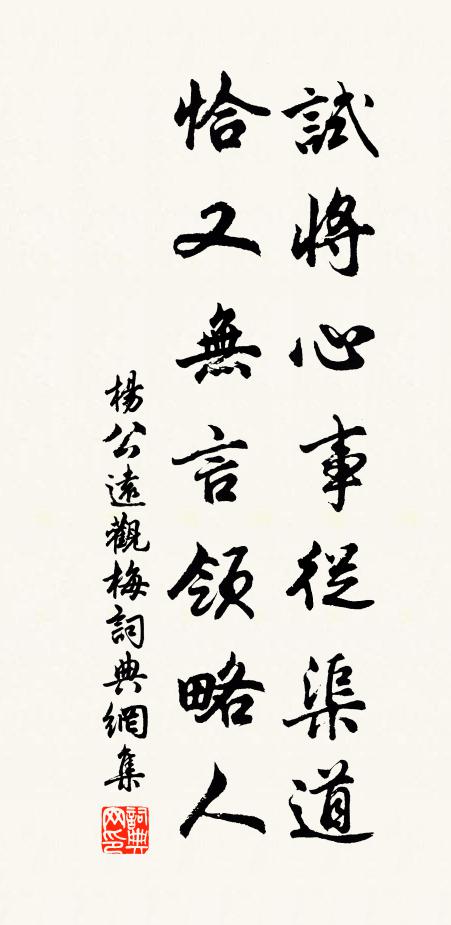 試將心事從渠道
恰又無言領略人
楊公遠觀梅詞典網集
詞典网印